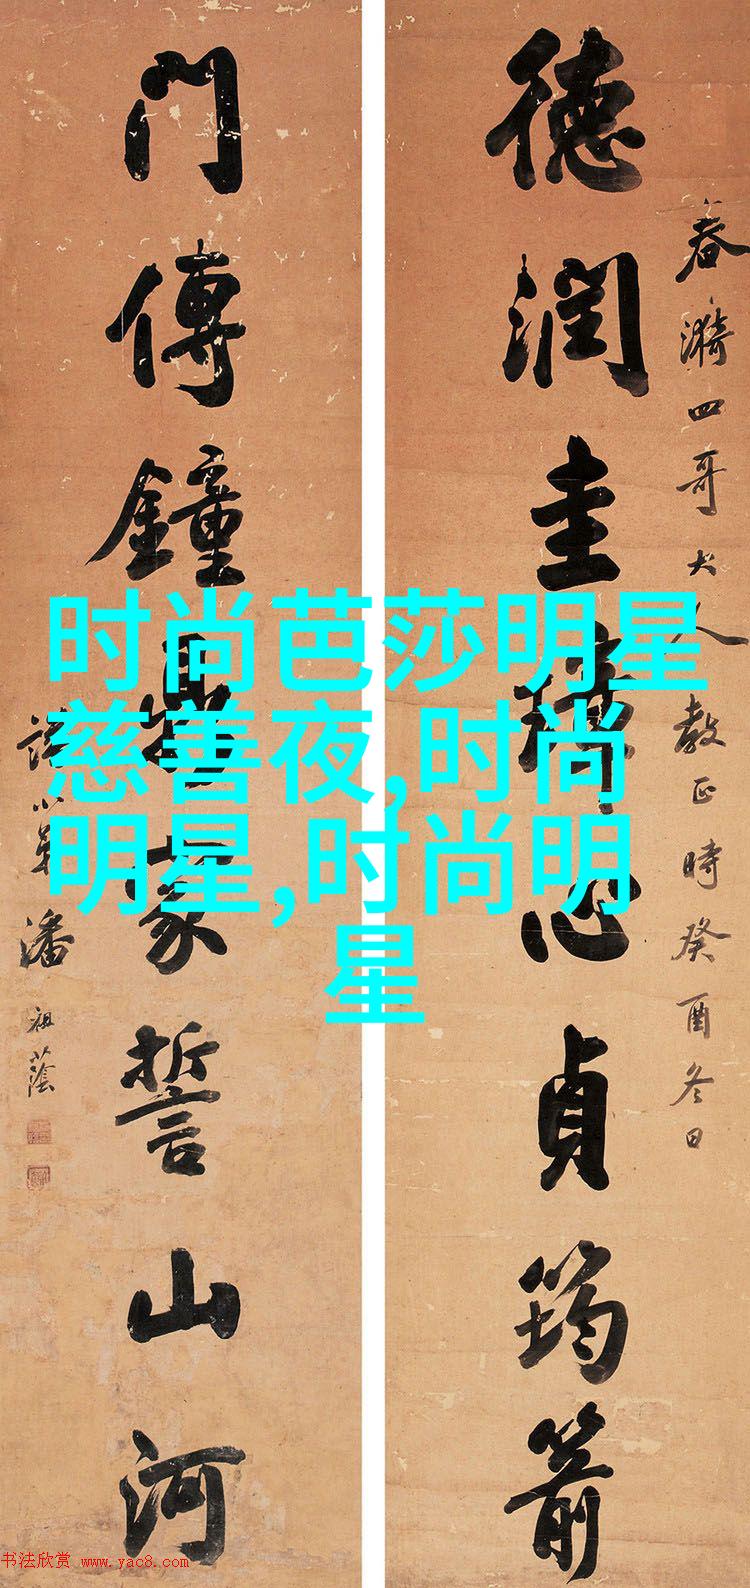 春漪四哥大人教正時癸酉冬日
德潤圭璋心貞筠箭
門傳鐘鼎家誓山河
小弟潘祖蔭
时尚芭莎明星
慈善夜,时尚
明星,时尚明
星
书法欣赏 www.yac8.com